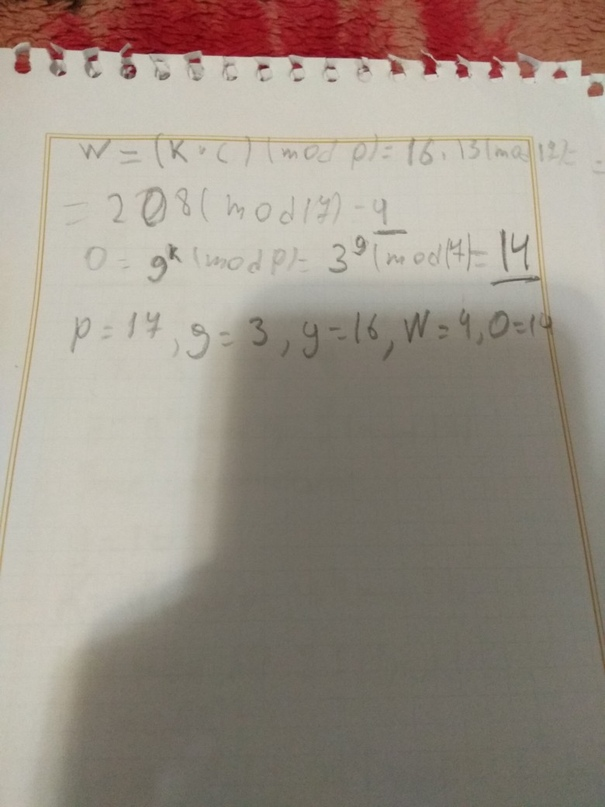 W = (K · C) (mod p) = 16 · 13 (mod 17) =
= 208 (mod 17) - 4
O = g^k (mod p) = 3^9 (mod 17) = 14
p = 17, g = 3, y = 16, W = 4, O = 14